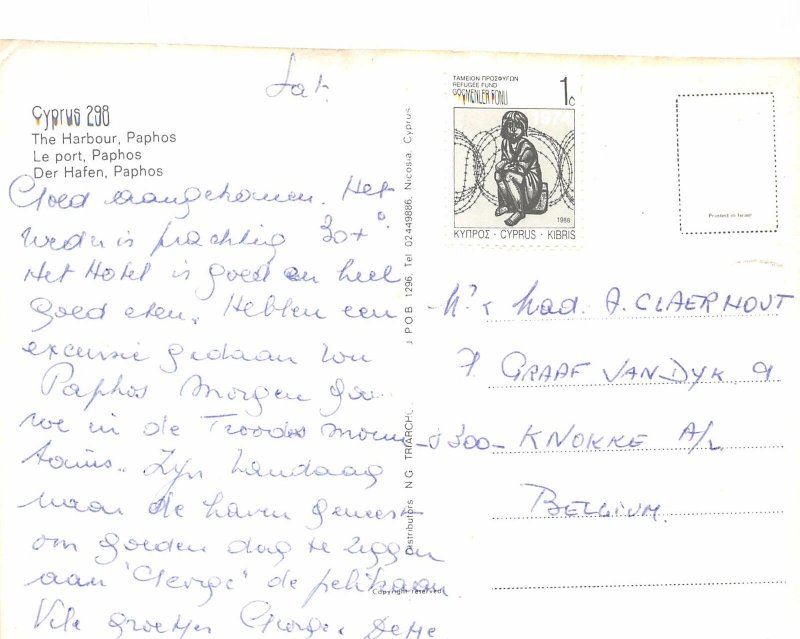 Sat.
Cyprus 298
The Harbour, Paphos
Le port, Paphos
Der Hafen, Paphos
Goed aangekomen. Het
weder is prachtig 30+°
Het Hotel is goed en heel
goed eten. Hebben een
excursie gedaan van
Paphos morgen gaan
we in de Troodos moun-
tains. Zijn vandaag
naar de haven geweest
om goeden dag te zeggen
aan 'George' de pelikaan
Vele groetjes George
Distributors N G TRIARCH
P.O.B 1296, Tel. 02449886, Nicosia Cyprus
Copyright reserved
ΤΑΜΕΙΟΝ ΠΡΟΣΦΥΓΩΝ
REFUGEE FUND
GÖÇMENLER FONU
1c
1974
1988
ΚΥΠΡΟΣ · CYPRUS · KIBRIS
Printed in Israel
Mad. A. CLAERHOUT
GRAAF VAN DYK 9
8300 - KNOKKE A/Z
BELGIUM.